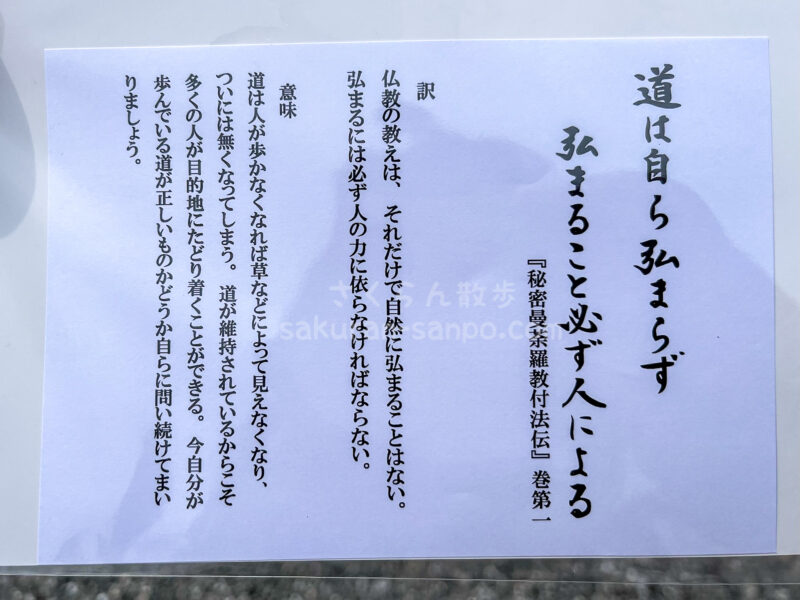 道は自ら弘まらず
弘まること必ず人による
『秘密曼荼羅教付法伝』巻第一
訳
仏教の教えは、それだけで自然に弘まることはない。
弘まるには必ず人の力に依らなければならない。
意味
道は人が歩かなくなれば草などによって見えなくなり、
ついには無くなってしまう。道が維持されているからこそ
多くの人が目的地にたどり着くことができる。今自分が
歩んでいる道が正しいものかどうか自らに問い続けてまい
りましょう。
さくらん散歩
sakuran-sanpo.com